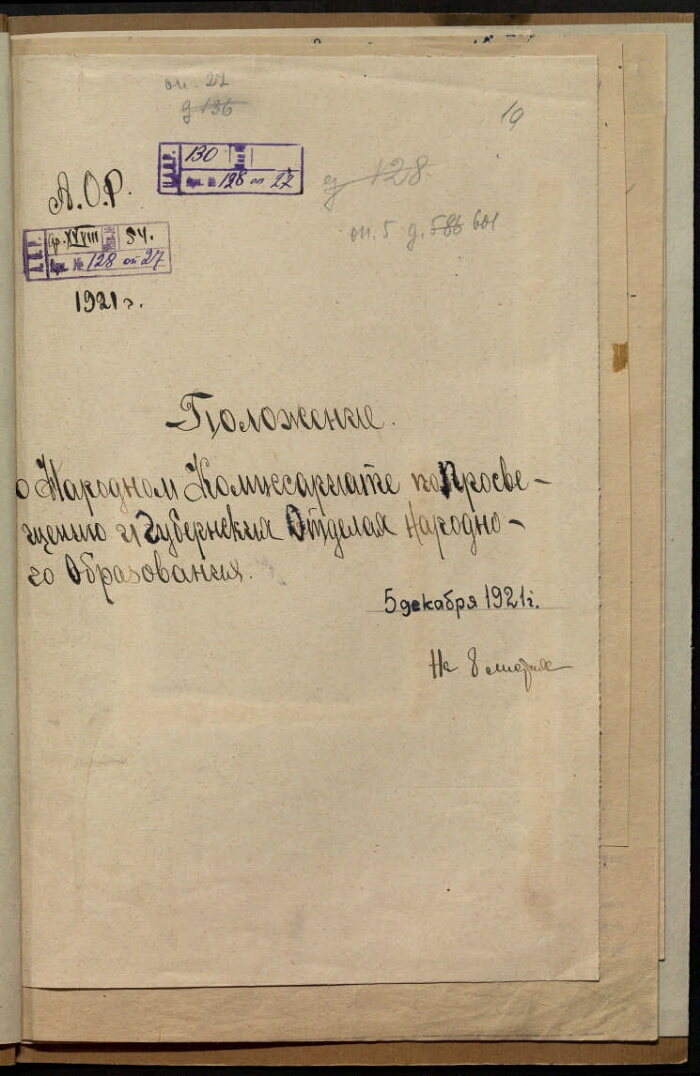 оп. 27
д 136
19
130
Арх. № 128 оп 27
д 128.
А.О.Р.
оп. 5 д. 586 601
ф. XXVIII 54.
Арх. № 128 оп 27
1921 г.
Положение.
о Народном Комиссариате по Просве-
щению и Губернских Отделах Народно-
го Образования.
5 декабря 1921 г.
На 8 листах